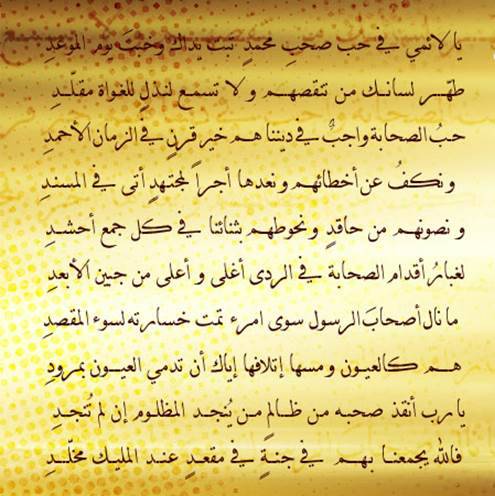 يا لائمي في حب صحبِ محمدٍ تبت يداك وخبتَ يوم الموعدِ
طهّــر لسانــك من تنقصهــم و لا تسمــع لنذلٍ للغواة مقلّــدِ
حبُ الصحابة واجبٌ في ديننا هــم خير قرنٍ في الزمان الأحمدِ
و نكفُ عن أخطائهــم و نعدها أجراً لمجتهدٍ أتى في المسندِ
و نصونهــم من حاقدٍ و نحوطهــم بثنائنا في كل جمع أحشــدِ
لغبارُ أقدام الصحابة في الردى أغلى و أعلى من جبين الأبعدِ
ما نال أصحابَ الرسول سوى امرء تمت خسارته لسوء المقصدِ
هــم كالعيــون و مسها إتلافها إياك أن تدمي العيــون بمرودِ
يا رب أنقذ صحبه من ظــالمٍ مــن يُنجــد المظلــوم إن لم تُنجــدِ
فالله يجمعنــا بهــم في جنــةٍ في مقعــدٍ عنــد المليــك مخلّــدِ